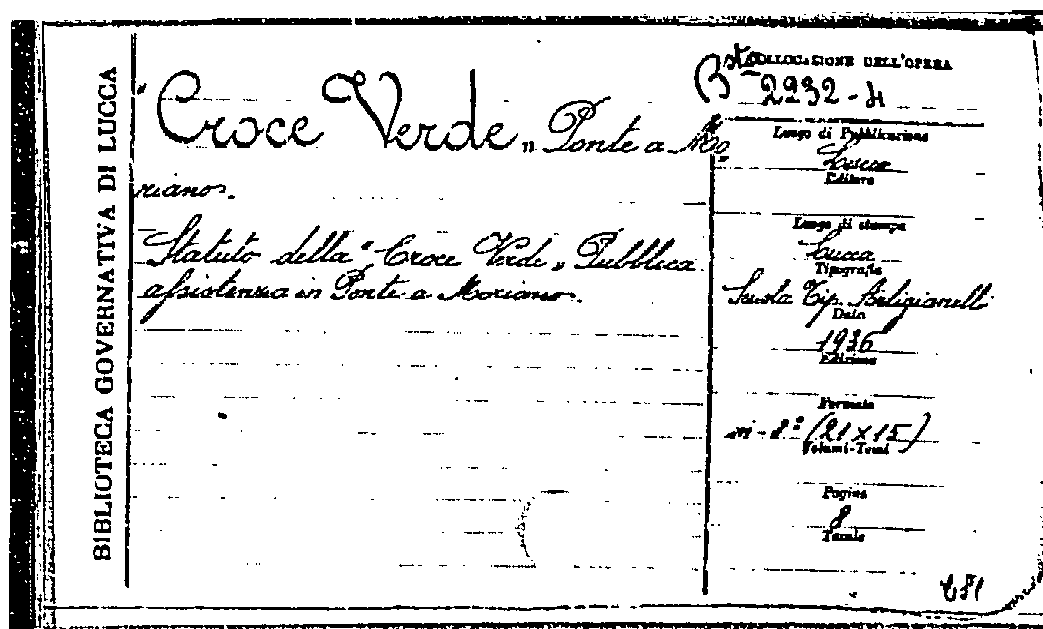 BIBLIOTECA GOVERNATIVA DI LUCCA
"Croce Verde" Ponte a Mo
riano.
Statuto della "Croce Verde" Pubblica
assistenza in Ponte a Moriano.
COLLOCAZIONE DELL'OPERA
Bsta 2932-4
Luogo di Pubblicazione
Lucca
Editore
Luogo di stampa
Lucca
Tipografia
Scuola Tip. Artigianelli
Data
1936
Edizione
Formato
in-8° (21×15)
Volumi-Tomi
Pagine
8
Tavole